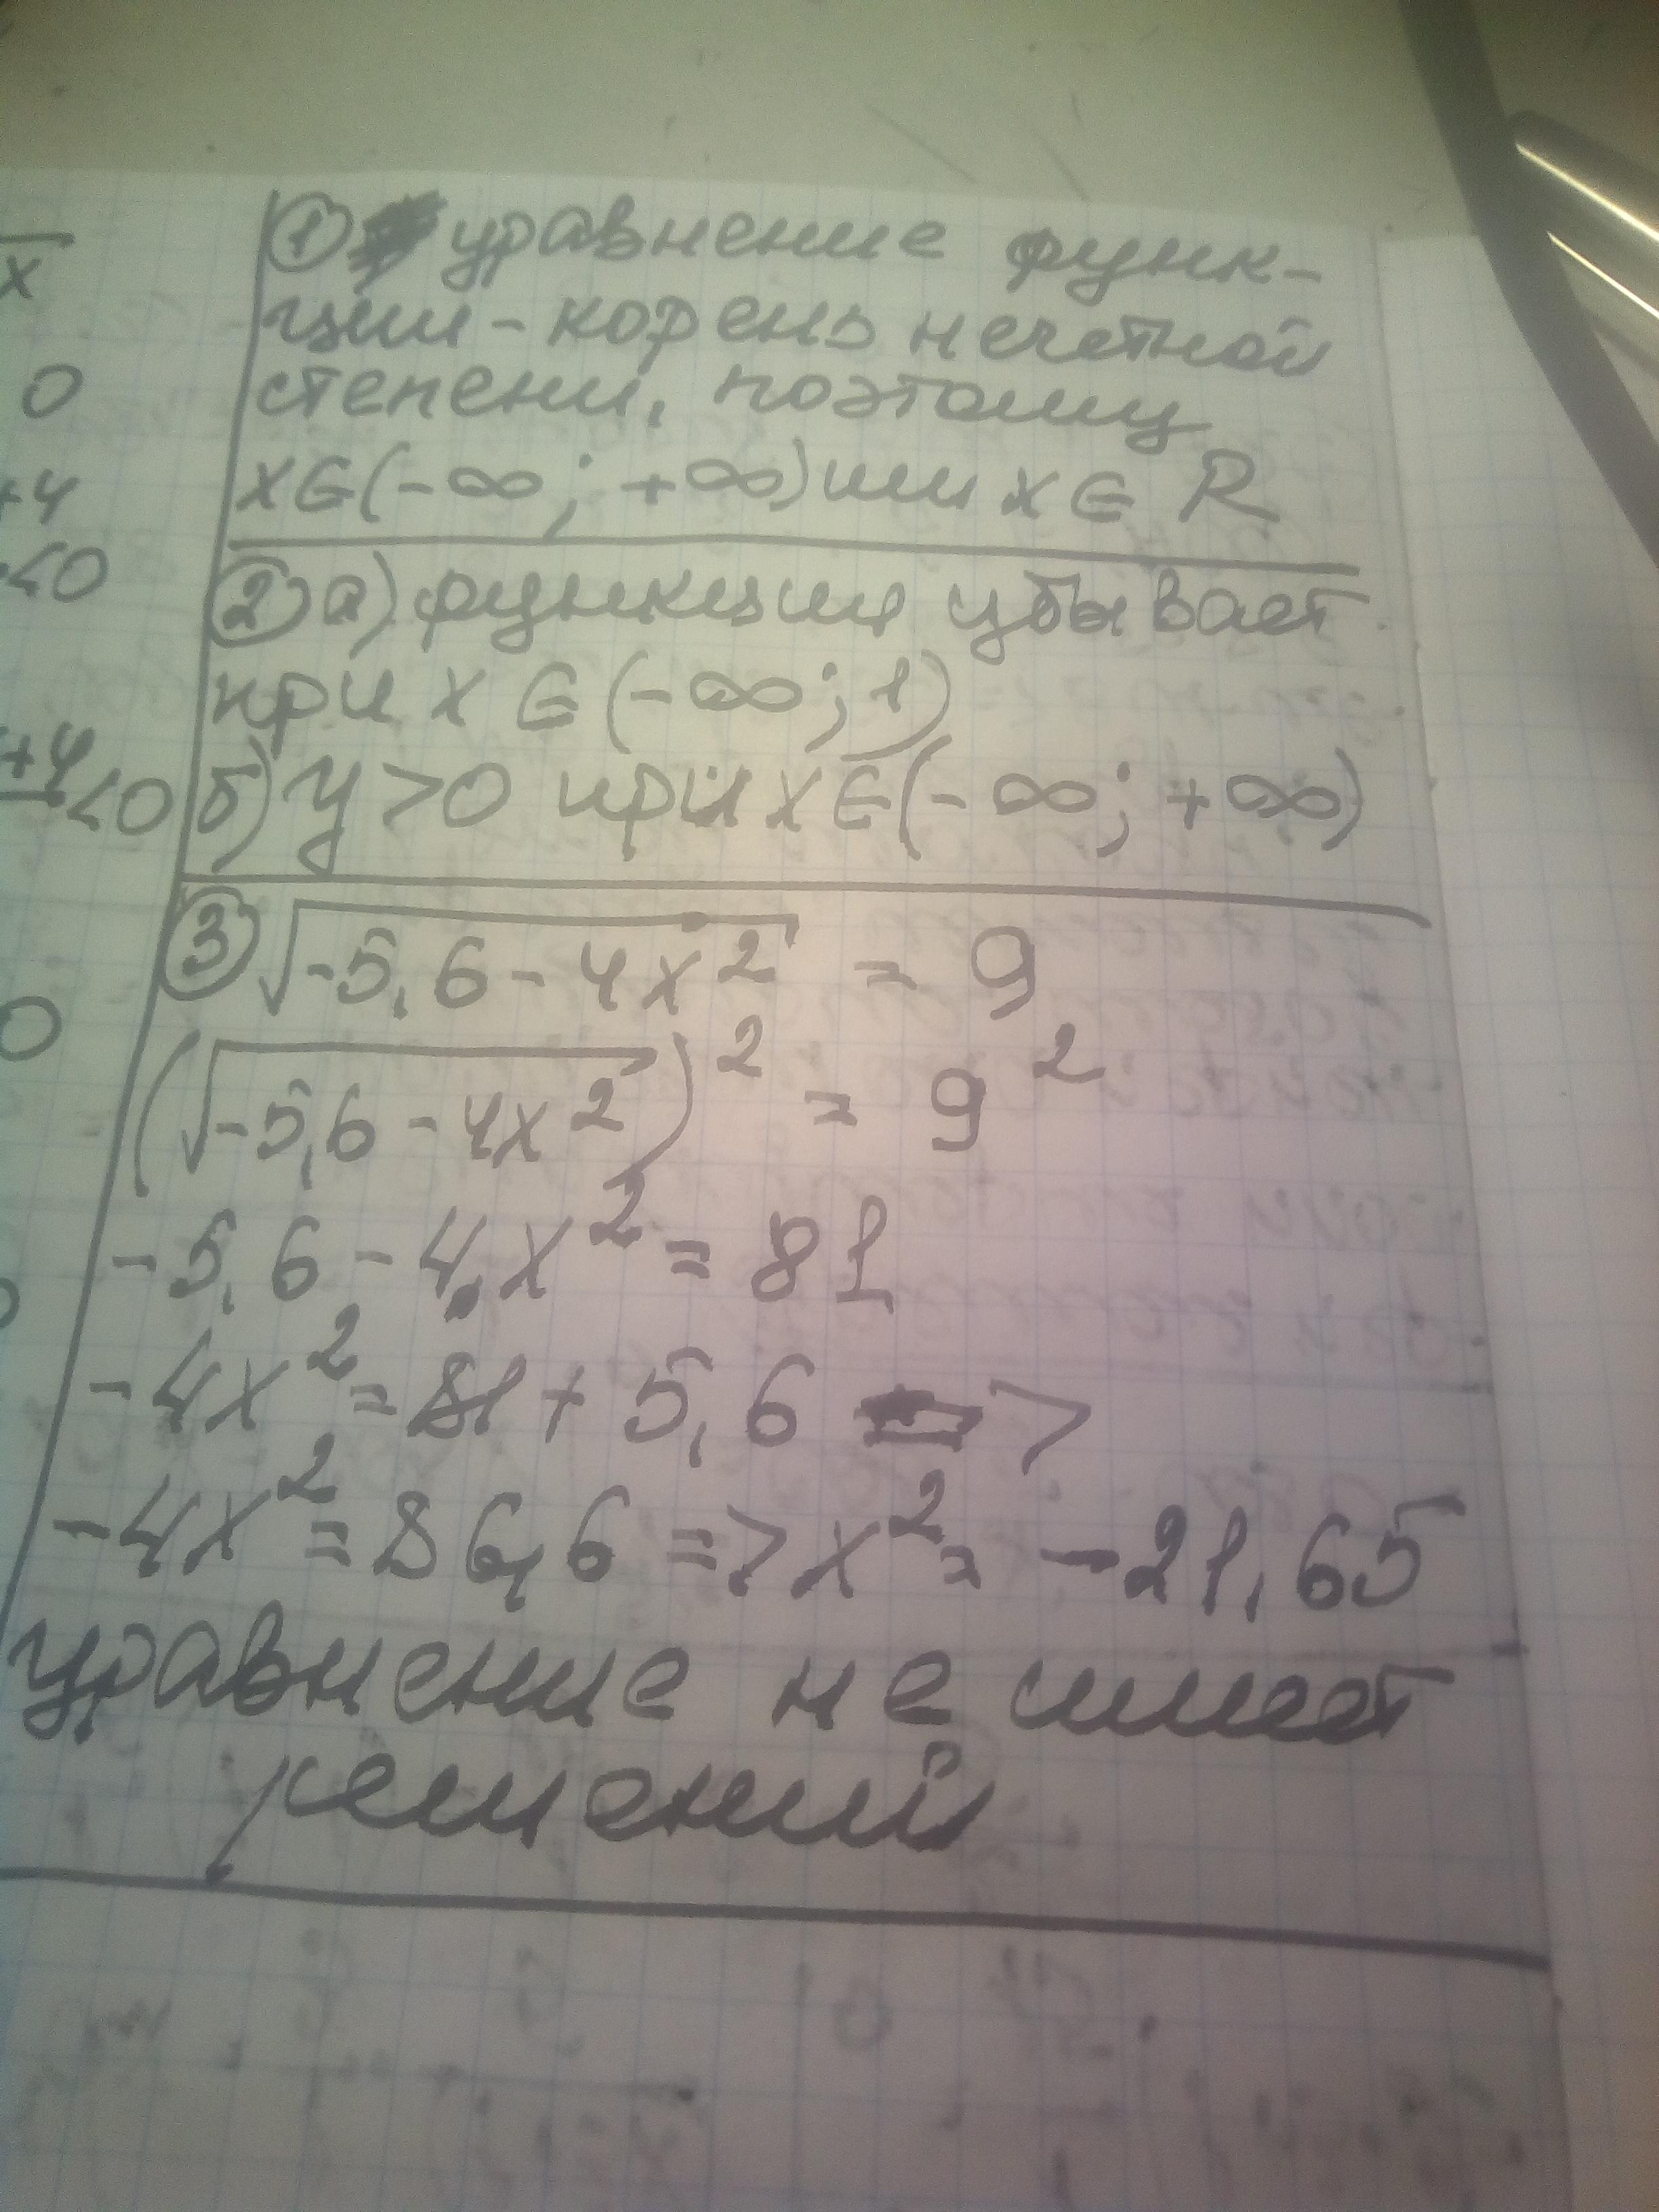 x
0
+4
<0
+4
<0
0
① уравнение функ-
ции - корень нечетной
степени, поэтому
x∈(-∞; +∞) или x∈R
② а) функция убывает
при x∈(-∞; 1)
б) y>0 при x∈(-∞; +∞)
③ √(-5,6-4x²) = 9
(√(-5,6-4x²))² = 9²
-5,6-4x² = 81
-4x² = 81+5,6 =>
-4x² = 86,6 => x² = -21,65
уравнение не имеет
решений